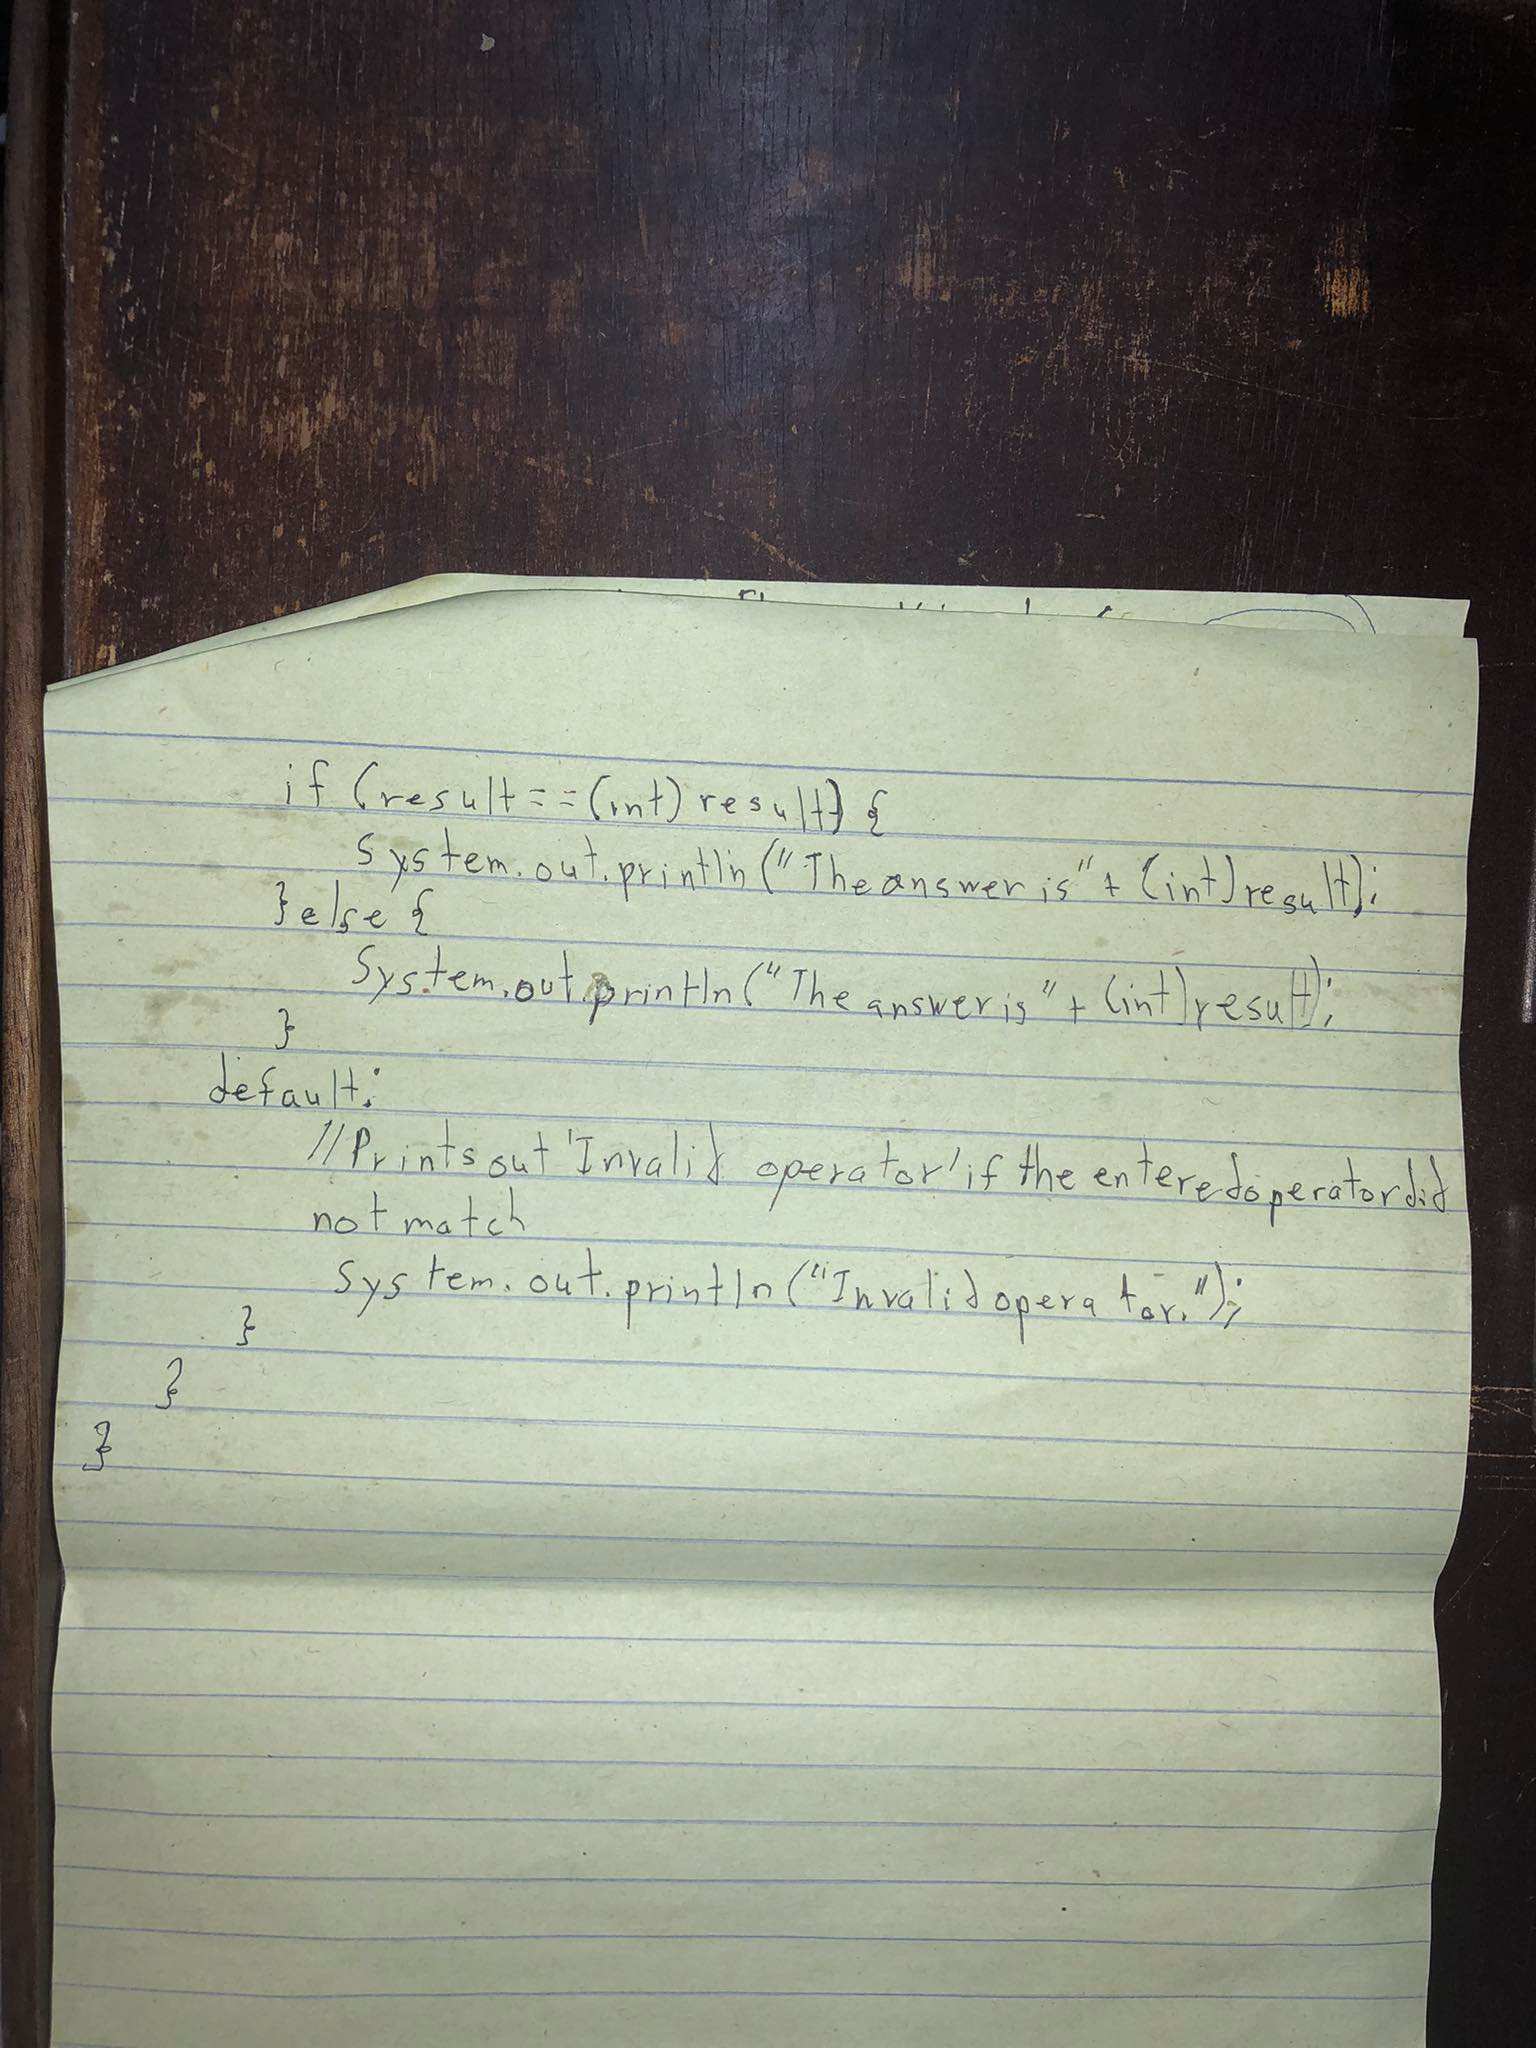 if (result == (int) result) {
System.out.println("The answer is" + (int) result);
} else {
System.out.println("The answer is" + (int) result);
}
default:
//Prints out 'Invalid operator' if the entered operator did
not match
System.out.println("Invalid operator.");
}
}
}